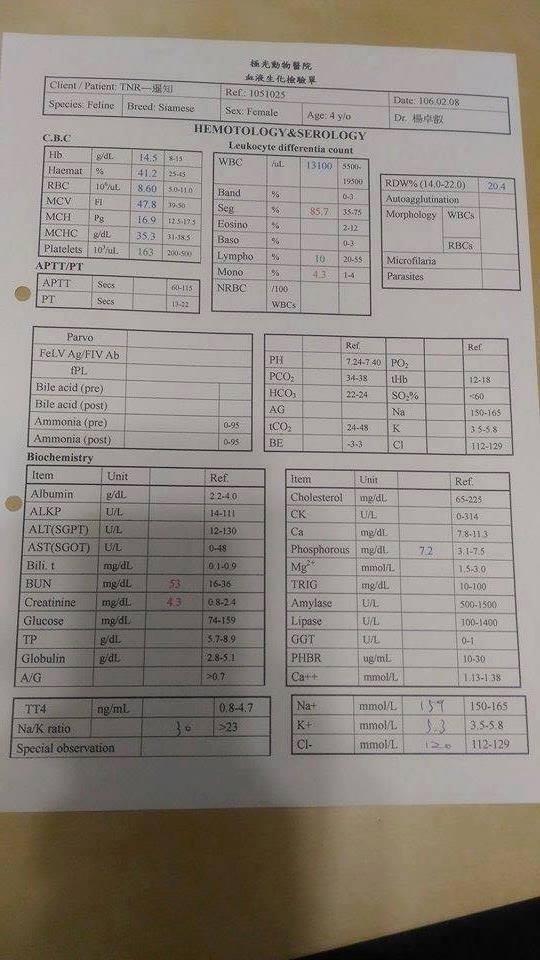 極光動物醫院
血液生化檢驗單
Client / Patient: TNR—暹知 Ref.: 1051025 Date: 106.02.08
Species: Feline Breed: Siamese Sex: Female Age: 4 y/o Dr. 楊卓叡
HEMOTOLOGY&SEROLOGY
C.B.C
Hb g/dL 14.5 8-15
Haemat % 41.2 25-45
RBC 10⁶/uL 8.60 5.0-11.0
MCV Fl 47.8 39-50
MCH Pg 16.9 12.5-17.5
MCHC g/dL 35.3 31-38.5
Platelets 10³/uL 163 200-500
APTT/PT
APTT Secs 60-115
PT Secs 13-22
Leukocyte differentia count
WBC /uL 13100 5500-
19500
Band % 0-3
Seg % 85.7 35-75
Eosino % 2-12
Baso % 0-3
Lympho % 10 20-55
Mono % 4.3 1-4
NRBC /100
WBCs
RDW% (14.0-22.0) 20.4
Autoagglutination
Morphology WBCs
RBCs
Microfilaria
Parasites
Parvo
FeLV Ag/FIV Ab
fPL
Bile acid (pre)
Bile acid (post)
Ammonia (pre) 0-95
Ammonia (post) 0-95
Ref. Ref.
PH 7.24-7.40 PO₂
PCO₂ 34-38 tHb 12-18
HCO₃ 22-24 SO₂% <60
AG Na 150-165
tCO₂ 24-48 K 3.5-5.8
BE -3-3 Cl 112-129
Biochemistry
Item Unit Ref.
Albumin g/dL 2.2-4.0
ALKP U/L 14-111
ALT(SGPT) U/L 12-130
AST(SGOT) U/L 0-48
Bili. t mg/dL 0.1-0.9
BUN mg/dL 53 16-36
Creatinine mg/dL 4.3 0.8-2.4
Glucose mg/dL 74-159
TP g/dL 5.7-8.9
Globulin g/dL 2.8-5.1
A/G >0.7
Item Unit Ref.
Cholesterol mg/dL 65-225
CK U/L 0-314
Ca mg/dL 7.8-11.3
Phosphorous mg/dL 7.2 3.1-7.5
Mg²⁺ mmol/L 1.5-3.0
TRIG mg/dL 10-100
Amylase U/L 500-1500
Lipase U/L 100-1400
GGT U/L 0-1
PHBR ug/mL 10-30
Ca++ mmol/L 1.13-1.38
TT4 ng/mL 0.8-4.7
Na/K ratio 30 >23
Special observation
Na+ mmol/L 159 150-165
K+ mmol/L 5.3 3.5-5.8
Cl- mmol/L 120 112-129